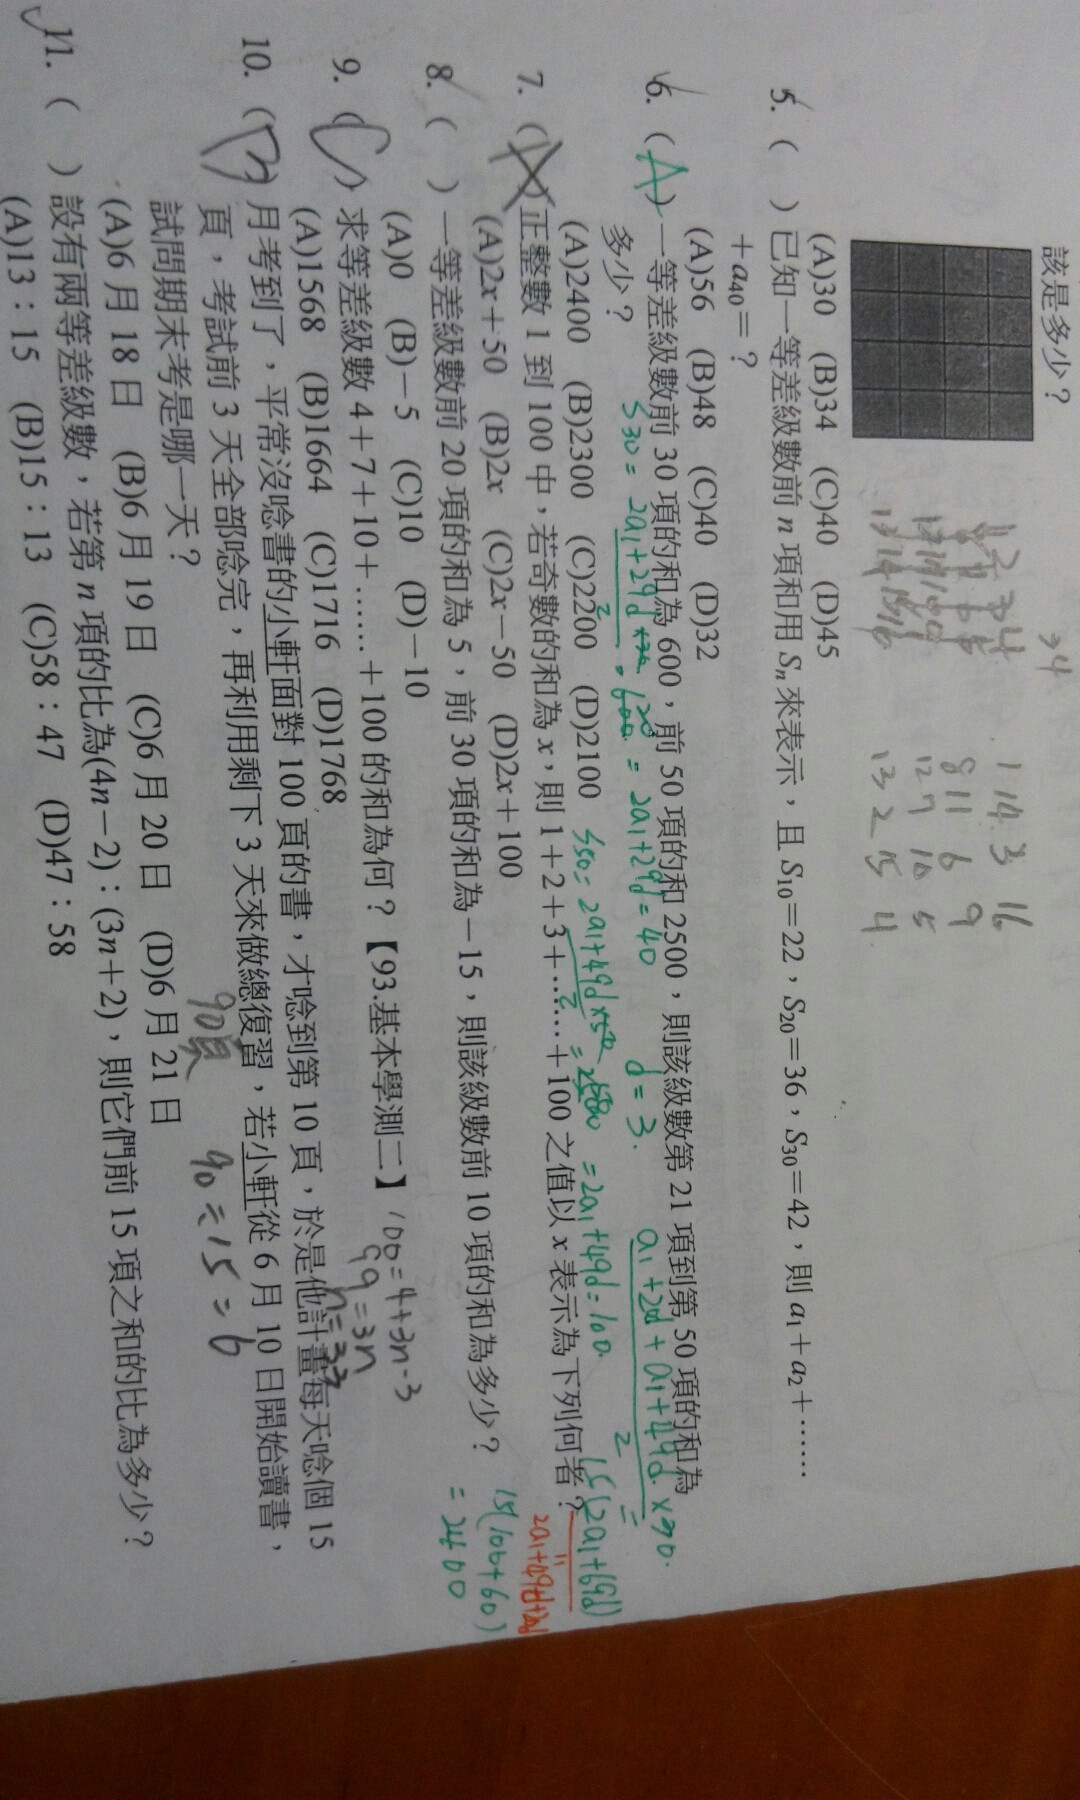 該是多少？
34
1 14 3 16
8 11 6 9
12 7 10 5
13 2 15 4
(A)30 (B)34 (C)40 (D)45
5. ( ) 已知一等差級數前 n 項和用 Sn 來表示，且 S10＝22，S20＝36，S30＝42，則 a1＋a2＋……
＋a40＝？
(A)56 (B)48 (C)40 (D)32
6. (A) 一等差級數前 30 項的和為 600，前 50 項的和 2500，則該級數第 21 項到第 50 項的和為
多少？
(A)2400 (B)2300 (C)2200 (D)2100
7. ( ) 正整數 1 到 100 中，若奇數的和為 x，則 1＋2＋3＋……＋100 之值以 x 表示為下列何者？
(A)2x＋50 (B)2x (C)2x－50 (D)2x＋100
8. ( ) 一等差級數前 20 項的和為 5，前 30 項的和為－15，則該級數前 10 項的和為多少？
(A)0 (B)－5 (C)10 (D)－10
9. (C) 求等差級數 4＋7＋10＋……＋100 的和為何？【93.基本學測二】 100=4+3n-3
99=3n
n=33
(A)1568 (B)1664 (C)1716 (D)1768
10. (B) 月考到了，平常沒唸書的小軒面對 100 頁的書，才唸到第 10 頁，於是他計畫每天唸個 15
頁，考試前 3 天全部唸完，再利用剩下 3 天來做總復習，若小軒從 6 月 10 日開始讀書，
試問期末考是哪一天？
90頁 90÷15=6
(A)6 月 18 日 (B)6 月 19 日 (C)6 月 20 日 (D)6 月 21 日
11. ( ) 設有兩等差級數，若第 n 項的比為(4n－2)：(3n＋2)，則它們前 15 項之和的比為多少？
(A)13：15 (B)15：13 (C)58：47 (D)47：58
d=3.
=2a1+29d=40
=2a1+49d=100.
15(2a1+69d)
15(100+60)
=2400